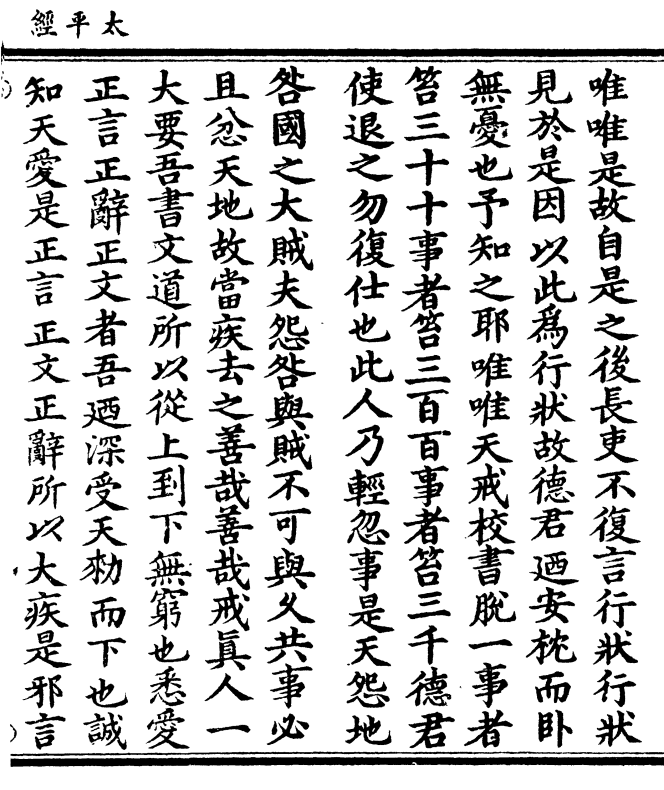 太平經
唯唯是故自是之後長吏不復言行狀行狀
見於是因以此爲行狀故德君迺安枕而卧
無憂也予知之耶唯唯天戒校書脫一事者
笞三十十事者笞三百百事者笞三千德君
使退之勿復仕也此人乃輕忽事是天怨地
咎國之大賊夫怨咎與賊不可與久共事必
且忿天地故當疾去之善哉善哉戒真人一
大要吾書文道所以從上到下無窮也悉愛
正言正辭正文者吾迺深受天勑而下也誠
知天愛是正言正文正辭所以大疾是邪言